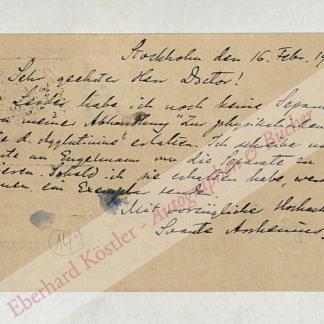 Stockholm den 16. Febr. 19
Sehr geehrter Herr Doctor!
Leider habe ich noch keine Separ
meiner Abhandlung "Zur physikalischen
d. Agglutinine" erhalten. Ich schreibe
an Engelmann um die Separate zu
ieren. Sobald ich sie erhalten habe, wer
nen ein Exemplar senden.
Mit vorzüglicher Hochac
Svante Arrhenius.
A49
Eberhard Köstler - Autographen & Bücher